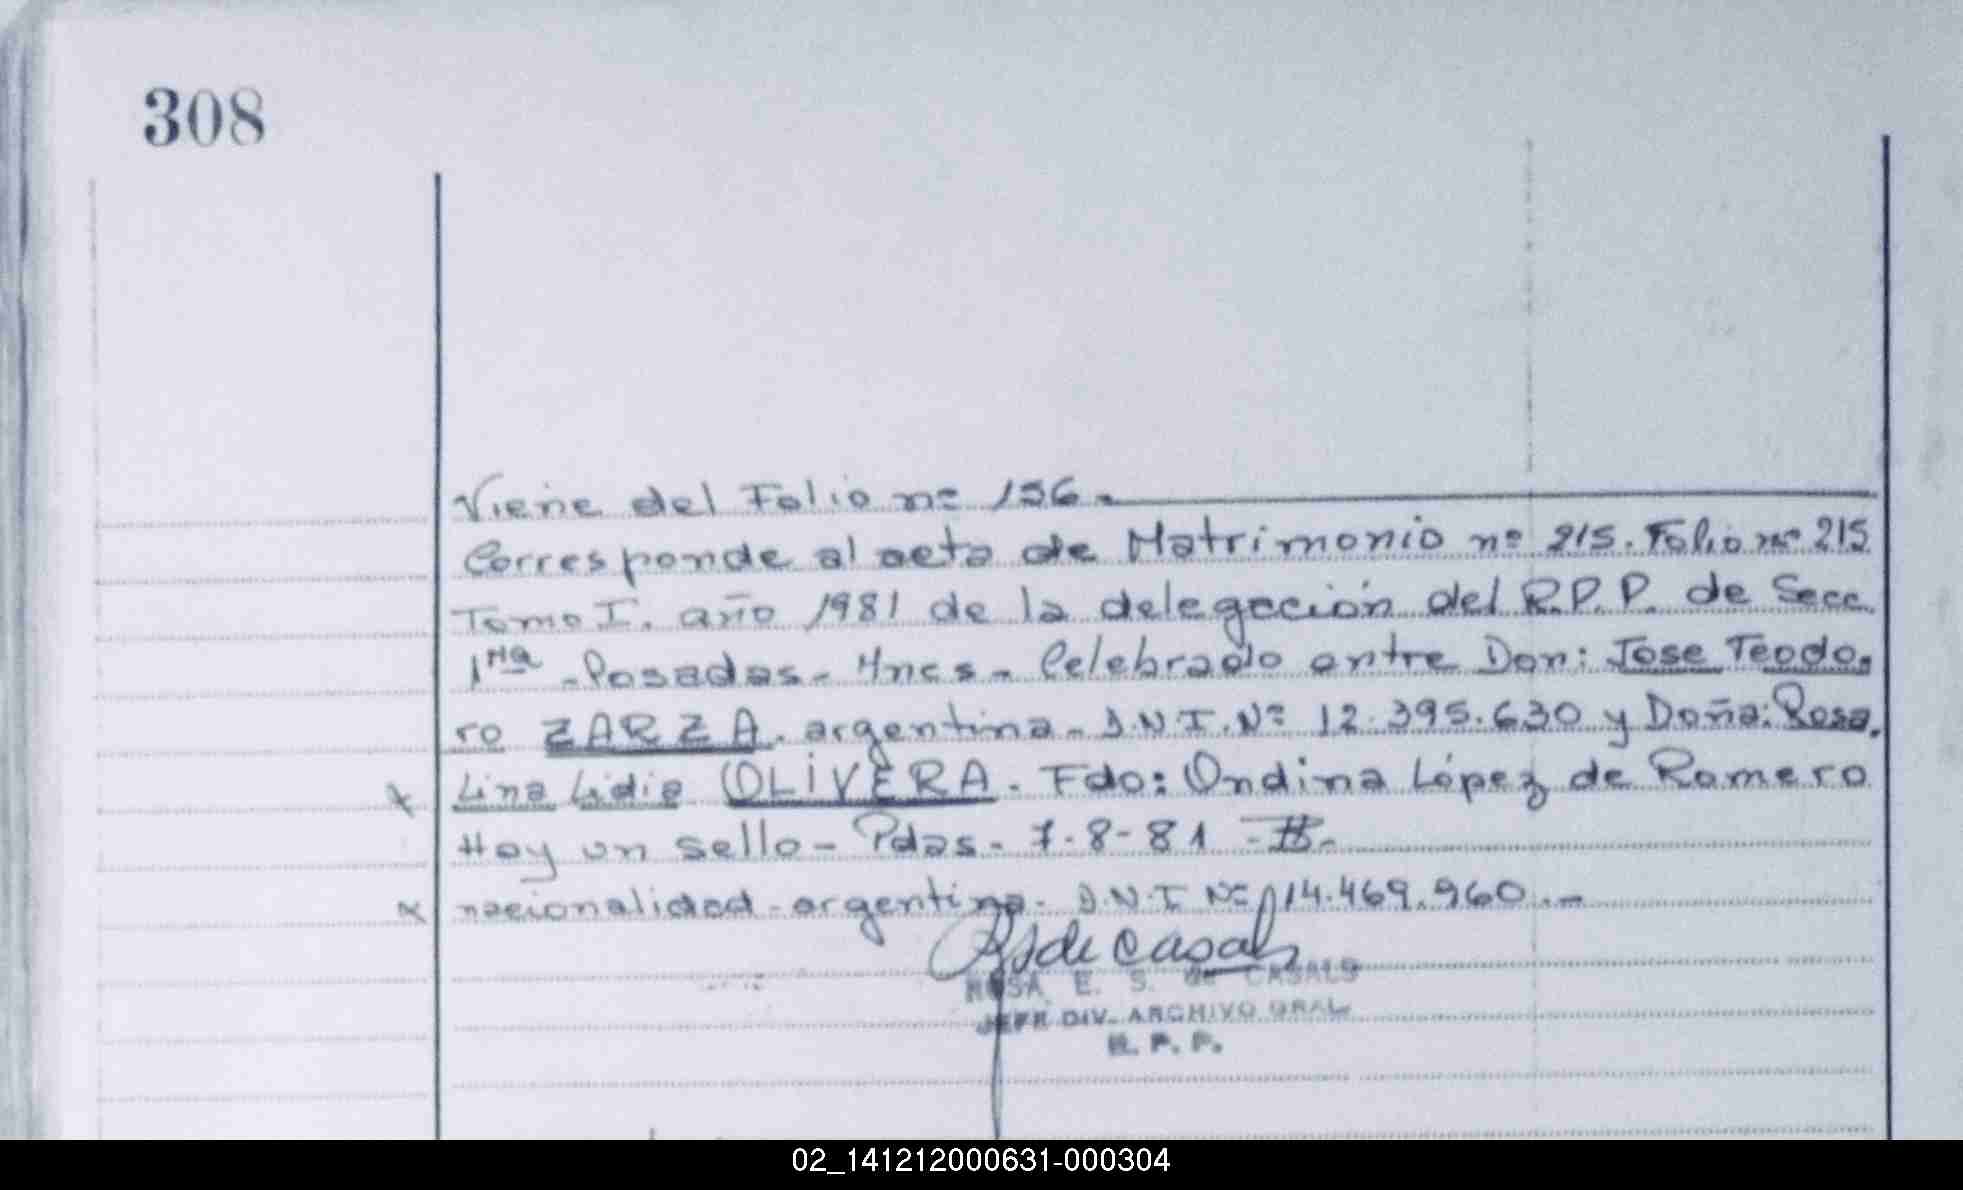 308
Viene del Folio nº 156.
Corresponde al acta de Matrimonio nº 215. Folio nº 215
Tomo I. año 1981 de la delegación del R.P.P. de Secc.
1ra - Posadas - Mnes - Celebrado entre Don: Jose Teodo.
ro ZARZA. argentina - D.N.I. Nº 12.395.630 y Doña: Rosa.
Lina Lidia OLIVERA. Fdo: Ondina López de Romero
Hay un sello - Pdas - 7-8-81
nacionalidad - argentina - D.N.I Nº 14.469.960.-
de Casals
ROSA E. S. de CASALS
JEFE DIV. ARCHIVO GRAL
R. P. P.
02_141212000631-000304